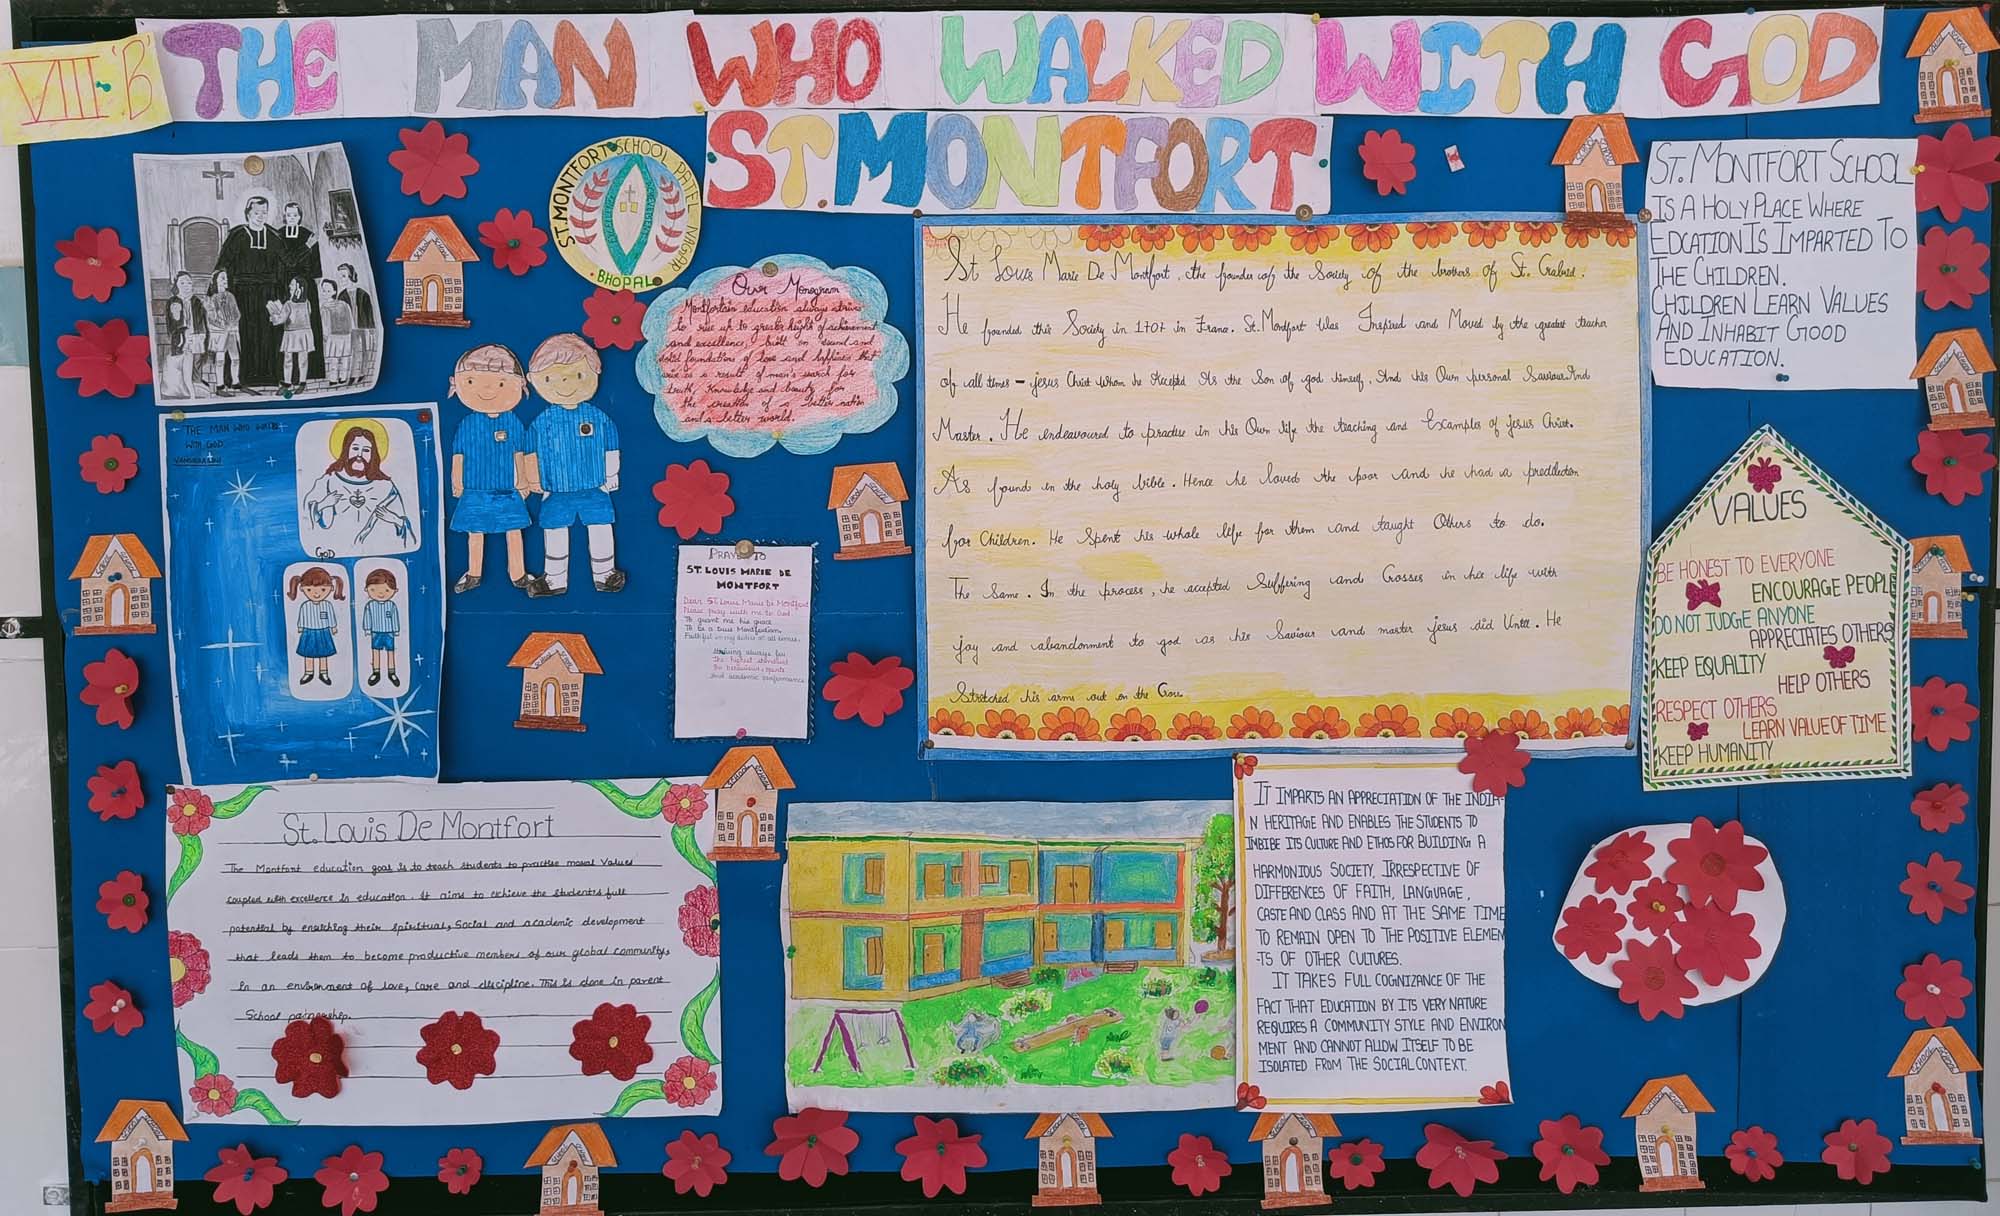 VIII 'B'
THE MAN WHO WALKED WITH GOD
ST. MONTFORT
ST. MONTFORT SCHOOL PATEL NAGAR
BHOPAL
Our Monogram
Montfortain education always strives
to rise up to greater height of achievement
and excellence, built on sound and
solid foundations of love and happiness that
arise as a result of man's search for
truth, knowledge and beauty for
the creation of a better nation
and a better world.
St Louis Marie De Montfort, the founder of the Society of the brothers of St. Grabriel.
He founded this Society in 1707 in France. St. Montfort Was Inspired and Moved by the greatest teacher
of all times - jesus Christ whom he Accepted As the Son of god himself, And his Own personal Saviour And
Master. He endeavoured to practise in his Own life the teaching and Examples of jesus Christ.
As found in the holy bible. Hence he loved the poor and he had a predilection
for Children. He Spent his whole life for them and taught Others to do.
The Same. In the process, he accepted Suffering and Crosses in his life with
joy and abandonment to god as his Saviour and master jesus did Until. He
Stretched his arms out on the Cross.
ST. MONTFORT SCHOOL
IS A HOLY PLACE WHERE
EDCATION IS IMPARTED TO
THE CHILDREN.
CHILDREN LEARN VALUES
AND INHABIT GOOD
EDUCATION.
THE MAN WHO WALKS
WITH GOD
GOD
PRAYER TO
ST. LOUIS MARIE DE
MONTFORT
Dear St. Louis Marie De Montfort
Please pray with me to God
To grant me his grace
To be a true Montfortian
Faithful in my duties at all times,
striving always for
the highest standard
in behaviour, sports
and academic performance
VALUES
BE HONEST TO EVERYONE
ENCOURAGE PEOPLE
DO NOT JUDGE ANYONE
APPRECIATES OTHERS
KEEP EQUALITY
HELP OTHERS
RESPECT OTHERS
LEARN VALUE OF TIME
KEEP HUMANITY
St. Louis De Montfort
The Montfort education goal is to teach students to practise moral values
coupled with excellence in education. It aims to achieve the student's full
potential by enriching their spiritual, Social and academic development
that leads them to become productive members of our global community,
in an environment of love, care and discipline. This is done in parent
School partnership.
IT IMPARTS AN APPRECIATION OF THE INDIA-
N HERITAGE AND ENABLES THE STUDENTS TO
IMBIBE ITS CULTURE AND ETHOS FOR BUILDING A
HARMONIOUS SOCIETY, IRRESPECTIVE OF
DIFFERENCES OF FAITH, LANGUAGE,
CASTE AND CLASS AND AT THE SAME TIME
TO REMAIN OPEN TO THE POSITIVE ELEMEN
-TS OF OTHER CULTURES.
IT TAKES FULL COGNIZANCE OF THE
FACT THAT EDUCATION BY ITS VERY NATURE
REQUIRES A COMMUNITY STYLE AND ENVIRON
MENT AND CANNOT ALLOW ITSELF TO BE
ISOLATED FROM THE SOCIAL CONTEXT.